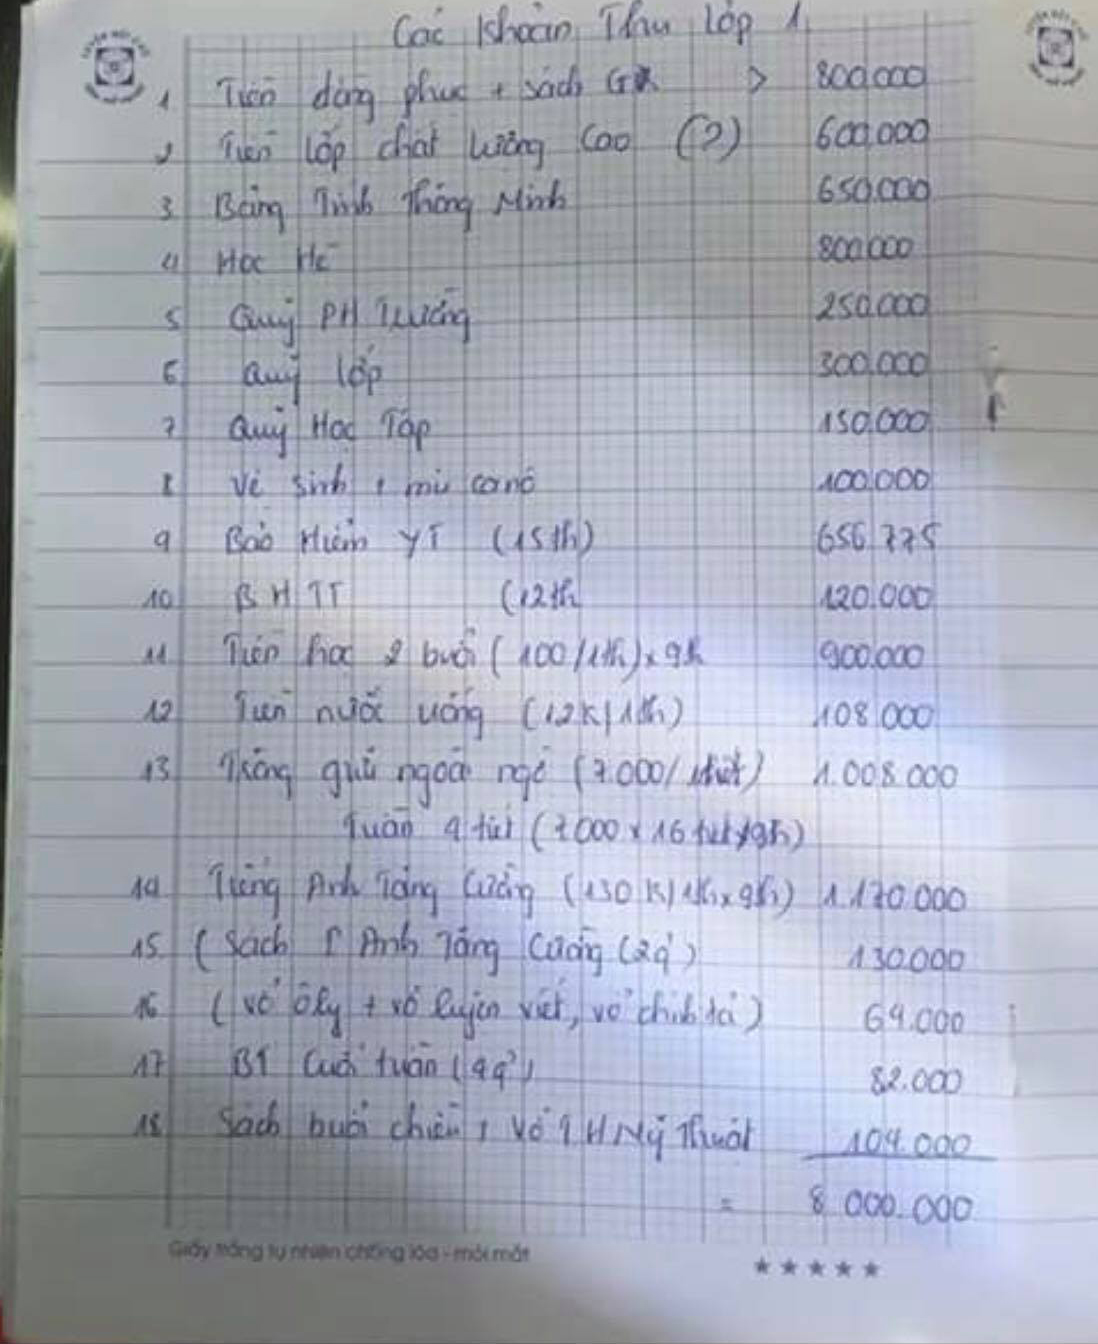 Các Khoản Thu Lớp 1
1 Tiền đồng phục + sách GK > 800.000
2 Tiền lớp chất lượng Cao (?) 600.000
3 Bảng Tính Thông Minh 650.000
4 Học Hè 800.000
5 Quỹ PH Trường 250.000
6 Quỹ lớp 300.000
7 Quỹ Học Tập 150.000
8 Vệ sinh + mũ ca nô 100.000
9 Bảo Hiểm YT (15th) 656.775
10 BHTT (12th 120.000
11 Tiền học 2 buổi (100/1th) x 9th 900.000
12 Tiền nước uống (12K/1th) 108.000
13 Trông giữ ngoài ngờ (7.000/1tiết) 1.008.000
Tuần 4 tiết (7000 x 16 tiết x 9th)
14 Tiếng Anh Tăng Cường (130K/1th x 9th) 1.170.000
15 (Sách T Anh Tăng Cường (2q') 130.000
16 (vở ôly + vở luyện viết, vở chính tả) 64.000
17 BT Cuối tuần (4q') 82.000
18 Sách buổi chiều + Vở TH Mỹ Thuật 104.000
= 8.000.000
Giấy trắng tự nhiên chống lóa - mỏi mắt
★★★★★